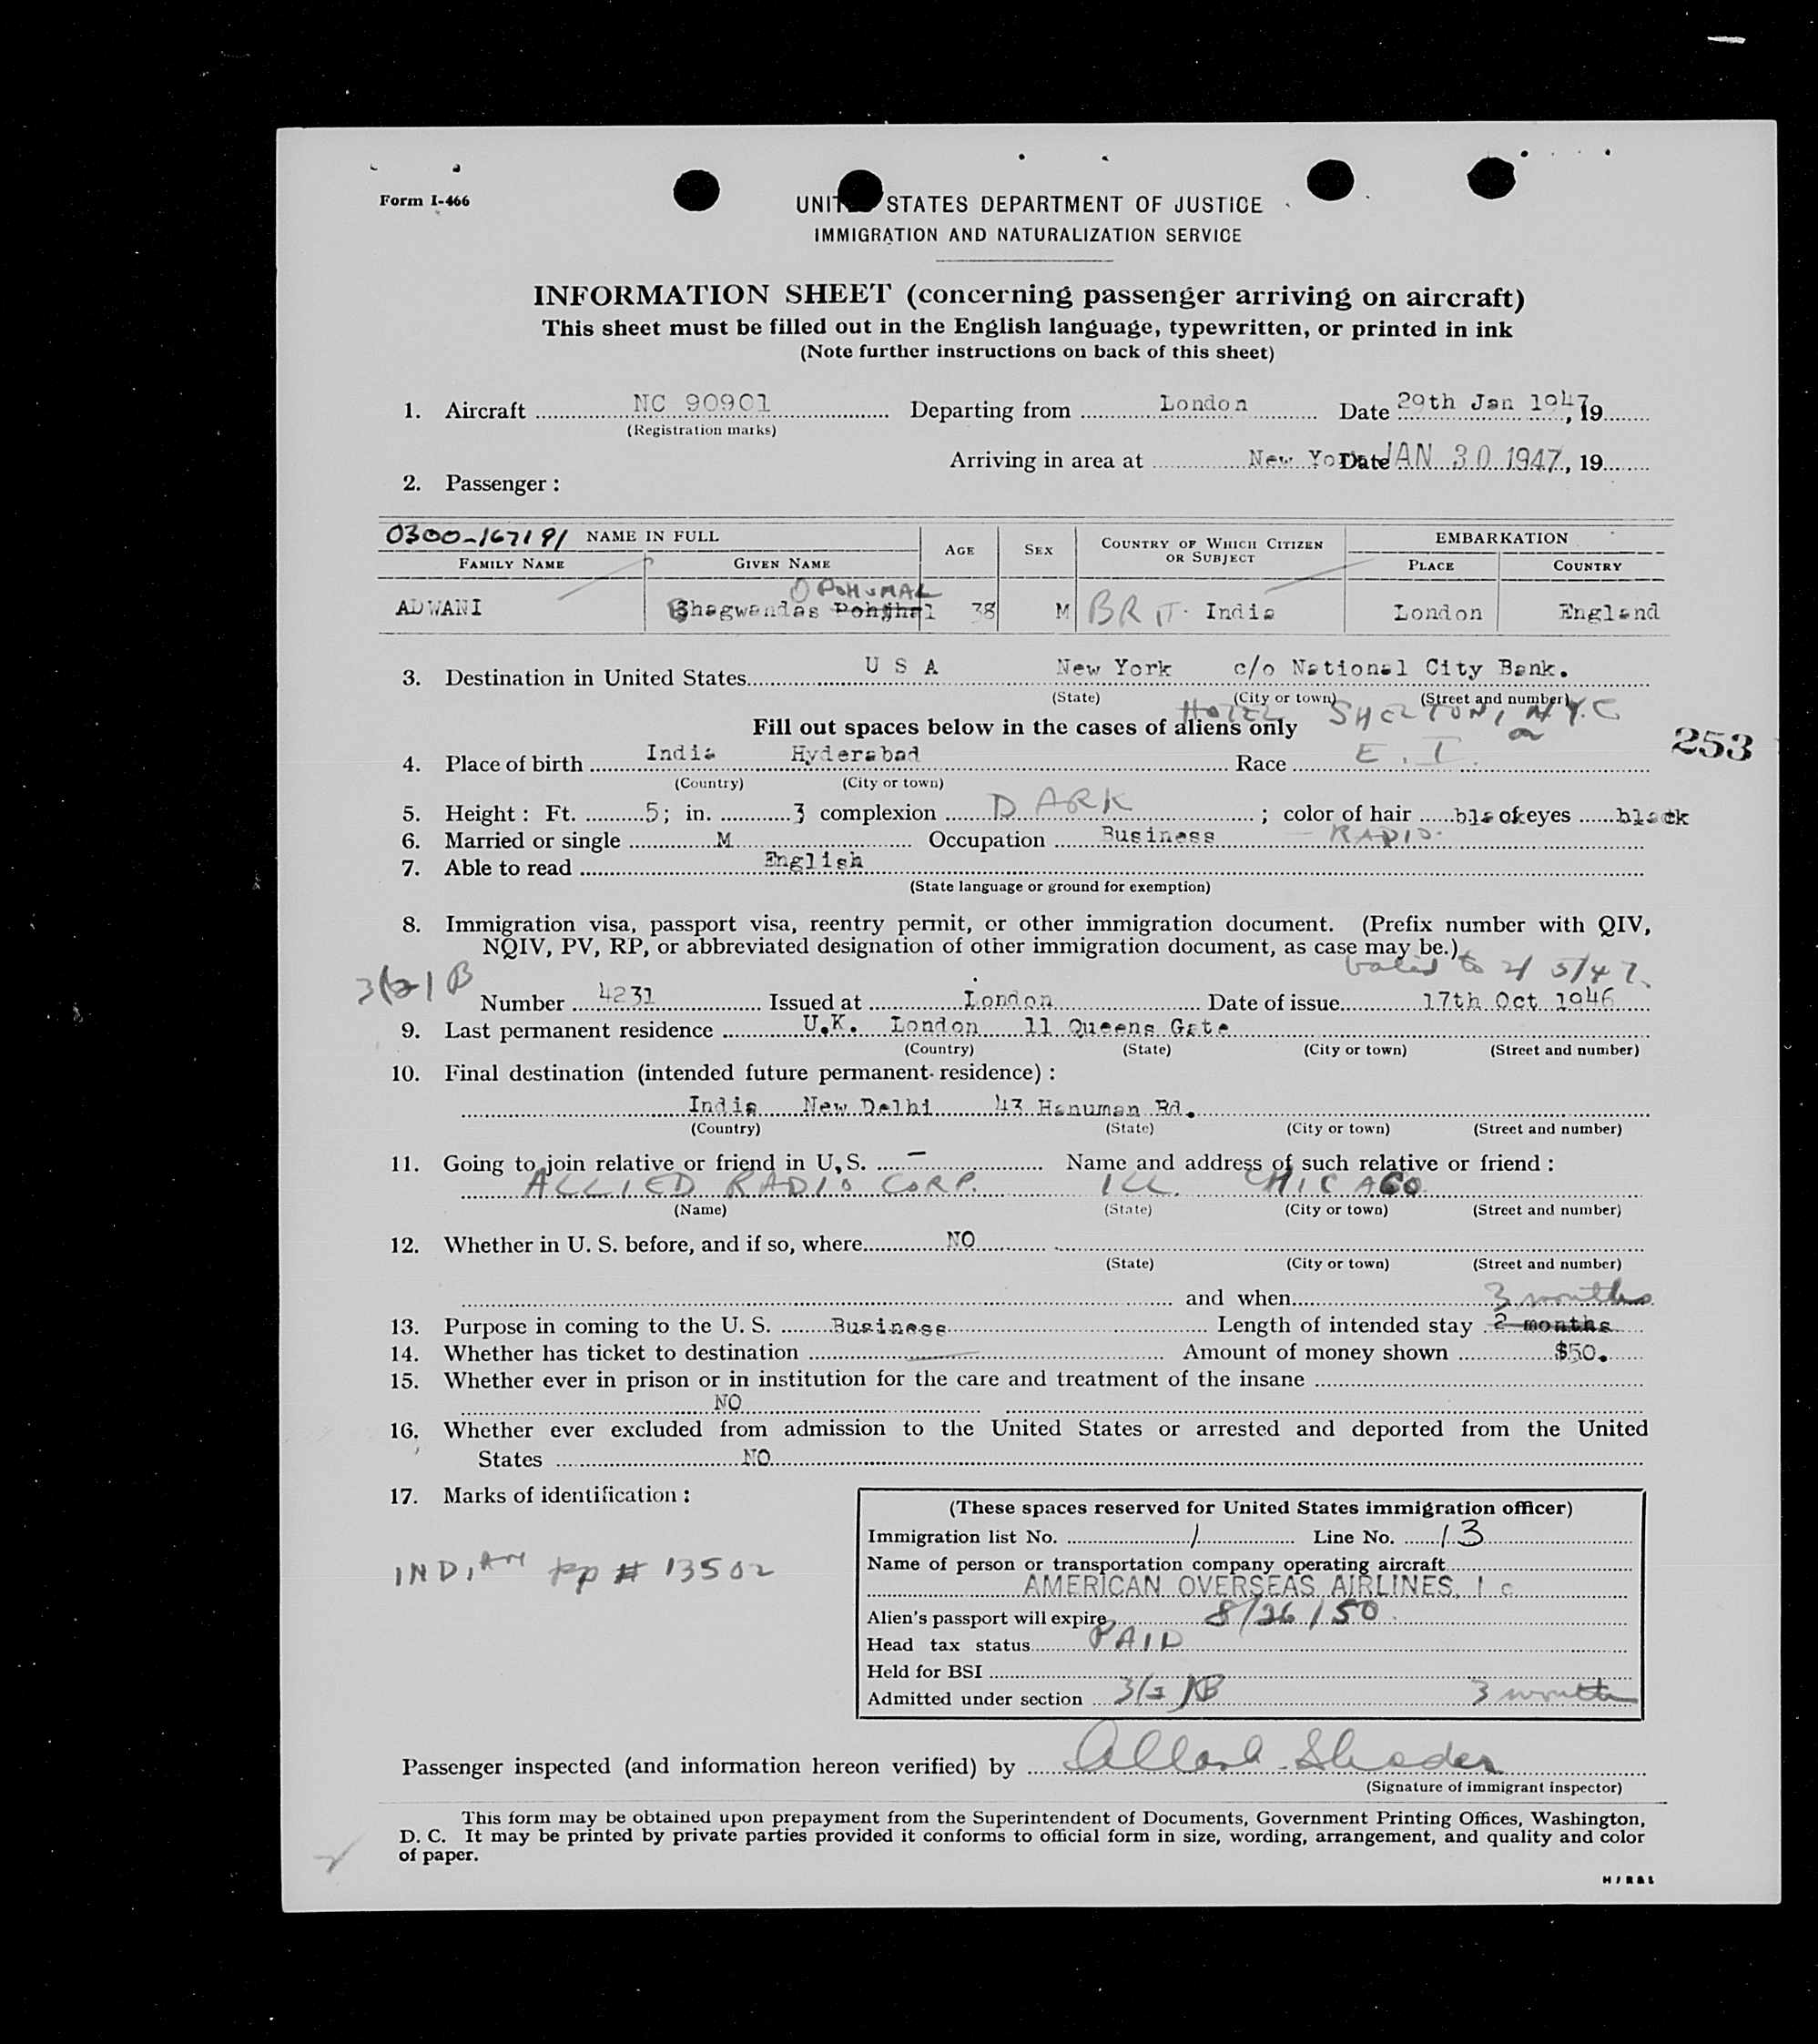 Form I-466
UNITED STATES DEPARTMENT OF JUSTICE
IMMIGRATION AND NATURALIZATION SERVICE
INFORMATION SHEET (concerning passenger arriving on aircraft)
This sheet must be filled out in the English language, typewritten, or printed in ink
(Note further instructions on back of this sheet)
1. Aircraft NC 90901 Departing from London Date 29th Jan 1947, 19
(Registration marks)
Arriving in area at New York Date JAN 30 1947, 19
2. Passenger:
0300-167191 NAME IN FULL AGE SEX COUNTRY OF WHICH CITIZEN OR SUBJECT EMBARKATION
FAMILY NAME GIVEN NAME PLACE COUNTRY
POHUMAL
ADWANI Bhagwandas 38 M BRIT. India London England
3. Destination in United States U S A New York c/o National City Bank.
(State) (City or town) (Street and number)
HOTEL SHELTON, N.Y.C
Fill out spaces below in the cases of aliens only
253
4. Place of birth India Hyderabad Race E. I.
(Country) (City or town)
5. Height: Ft. 5; in. 3 complexion DARK; color of hair black eyes black
6. Married or single M Occupation Business - RADIO.
7. Able to read English
(State language or ground for exemption)
8. Immigration visa, passport visa, reentry permit, or other immigration document. (Prefix number with QIV,
NQIV, PV, RP, or abbreviated designation of other immigration document, as case may be.)
valid to 2/5/47.
3(2) B
Number 4231 Issued at London Date of issue 17th Oct 1946
9. Last permanent residence U.K. London 11 Queens Gate
(Country) (State) (City or town) (Street and number)
10. Final destination (intended future permanent residence):
India New Delhi 43 Hanuman Rd.
(Country) (State) (City or town) (Street and number)
11. Going to join relative or friend in U.S. — Name and address of such relative or friend:
ALLIED RADIO CORP. ILL. CHICAGO
(Name) (State) (City or town) (Street and number)
12. Whether in U. S. before, and if so, where NO
(State) (City or town) (Street and number)
and when
3 months
13. Purpose in coming to the U. S. Business Length of intended stay 2 months
14. Whether has ticket to destination Amount of money shown $50.
15. Whether ever in prison or in institution for the care and treatment of the insane
NO
16. Whether ever excluded from admission to the United States or arrested and deported from the United
States NO
17. Marks of identification:
INDIAN pp # 13502
(These spaces reserved for United States immigration officer)
Immigration list No. 1 Line No. 13
Name of person or transportation company operating aircraft
AMERICAN OVERSEAS AIRLINES, I c.
Alien's passport will expire 8/26/50
Head tax status PAID
Held for BSI
Admitted under section 3(2)B 3 months
Passenger inspected (and information hereon verified) by
(Signature of immigrant inspector)
This form may be obtained upon prepayment from the Superintendent of Documents, Government Printing Offices, Washington,
D. C. It may be printed by private parties provided it conforms to official form in size, wording, arrangement, and quality and color
of paper.